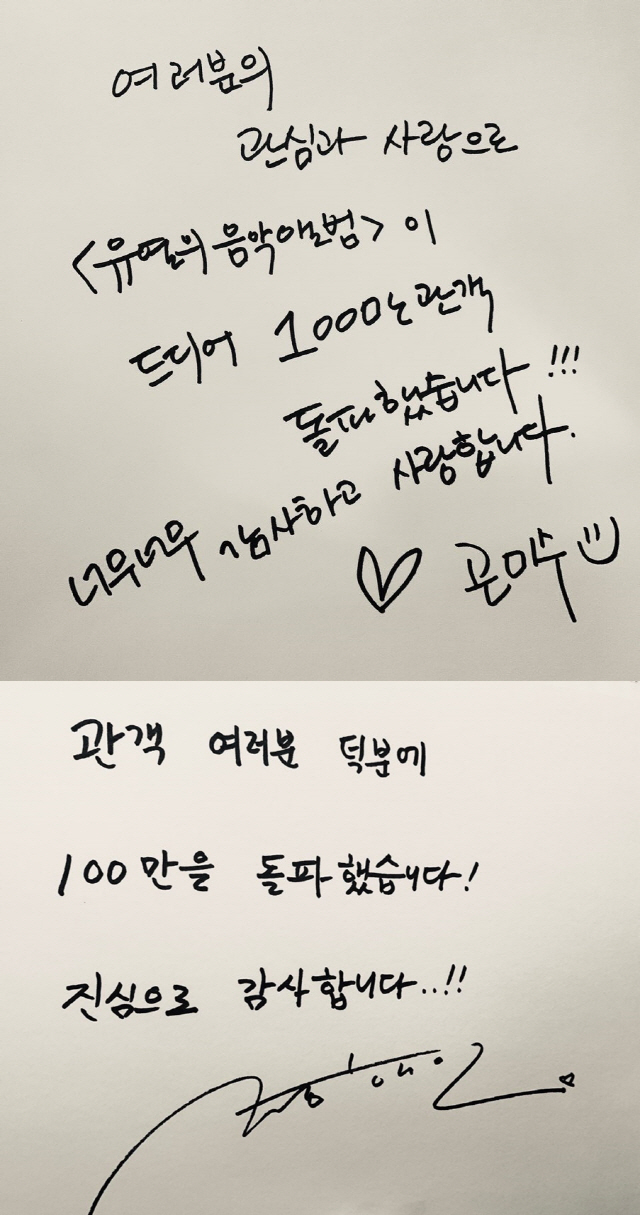 여러분의
관심과 사랑으로
<유열의 음악앨범>이
드디어 100만 관객
돌파했습니다!!!
너무너무 감사하고 사랑합니다.
♡ 고은
관객 여러분 덕분에
100만을 돌파했습니다!
진심으로 감사합니다..!!
정해인